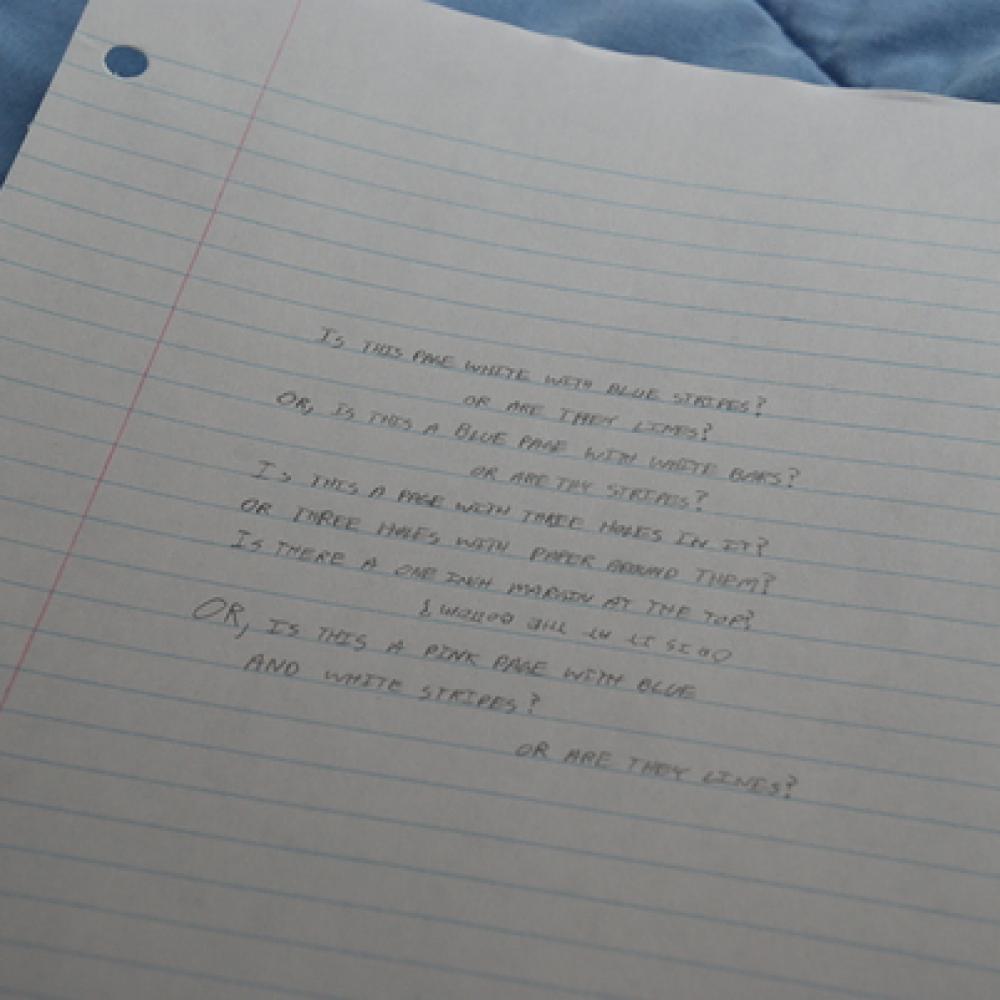 Is THIS PAGE WHITE WITH BLUE STRIPES?
OR ARE THEY LINES?
OR, IS THIS A BLUE PAGE WITH WHITE BARS?
OR ARE THY STRIPES?
Is THIS A PAGE WITH THREE HOLES IN IT?
OR THREE HOLES WITH PAPER AROUND THEM?
Is THERE A ONE INCH MARGIN AT THE TOP?
OR IS IT AT THE BOTTOM?
OR, IS THIS A PINK PAGE WITH BLUE
AND WHITE STRIPES?
OR ARE THEY LINES?